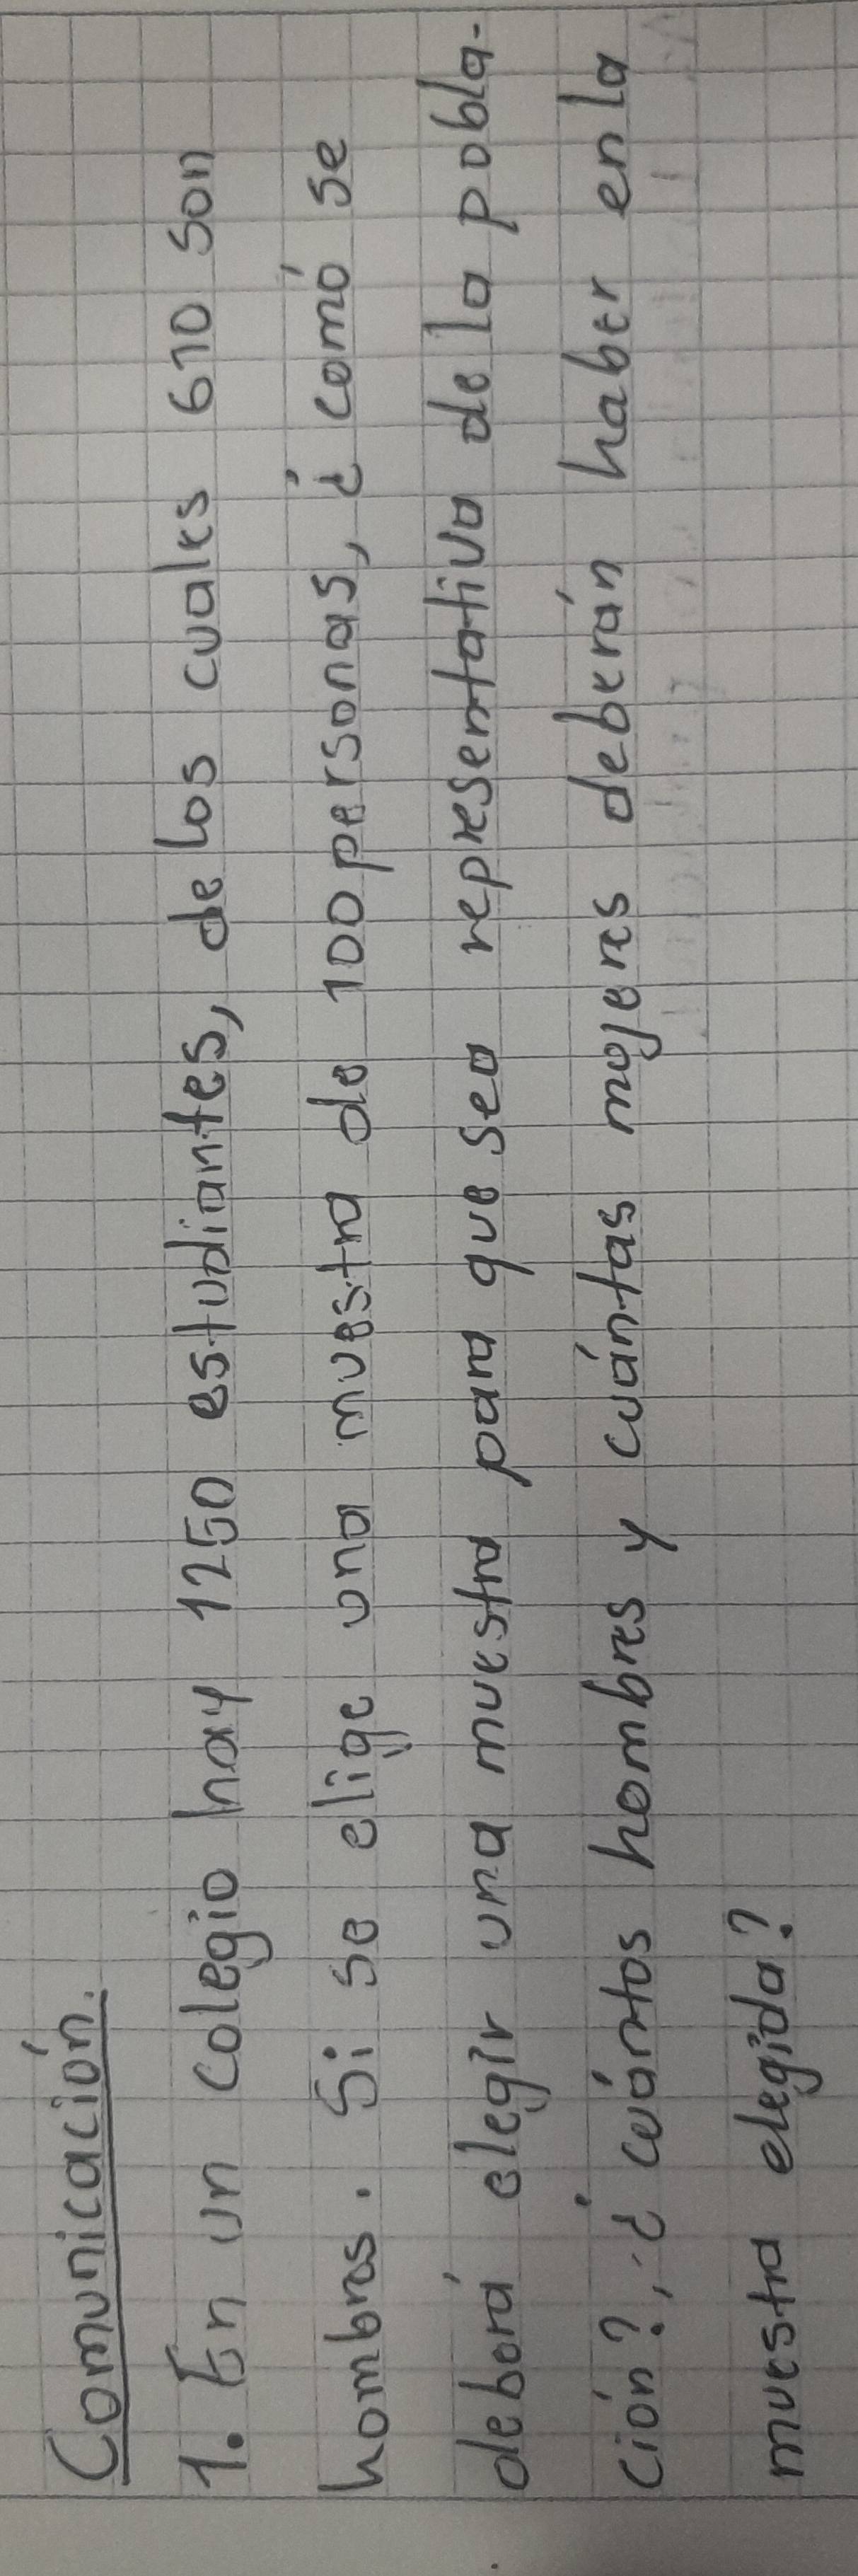 Comunicación.
1. En un colegio hay 1250 estudiantes, de los cuales 610 son
hombres. Si se elige una muestra de 100 personas, ¿ comó se
deberá elegir una muestra para que sea representativa de la pobla-
ción?, ¿ cuántos hombres y cuántas mujeres deberán haber en la
muestra elegida?